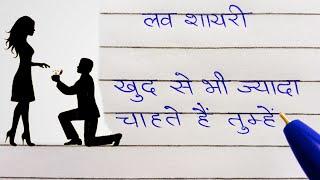 लव शायरी
खुद से भी ज्यादा
चाहते हैं तुम्हें